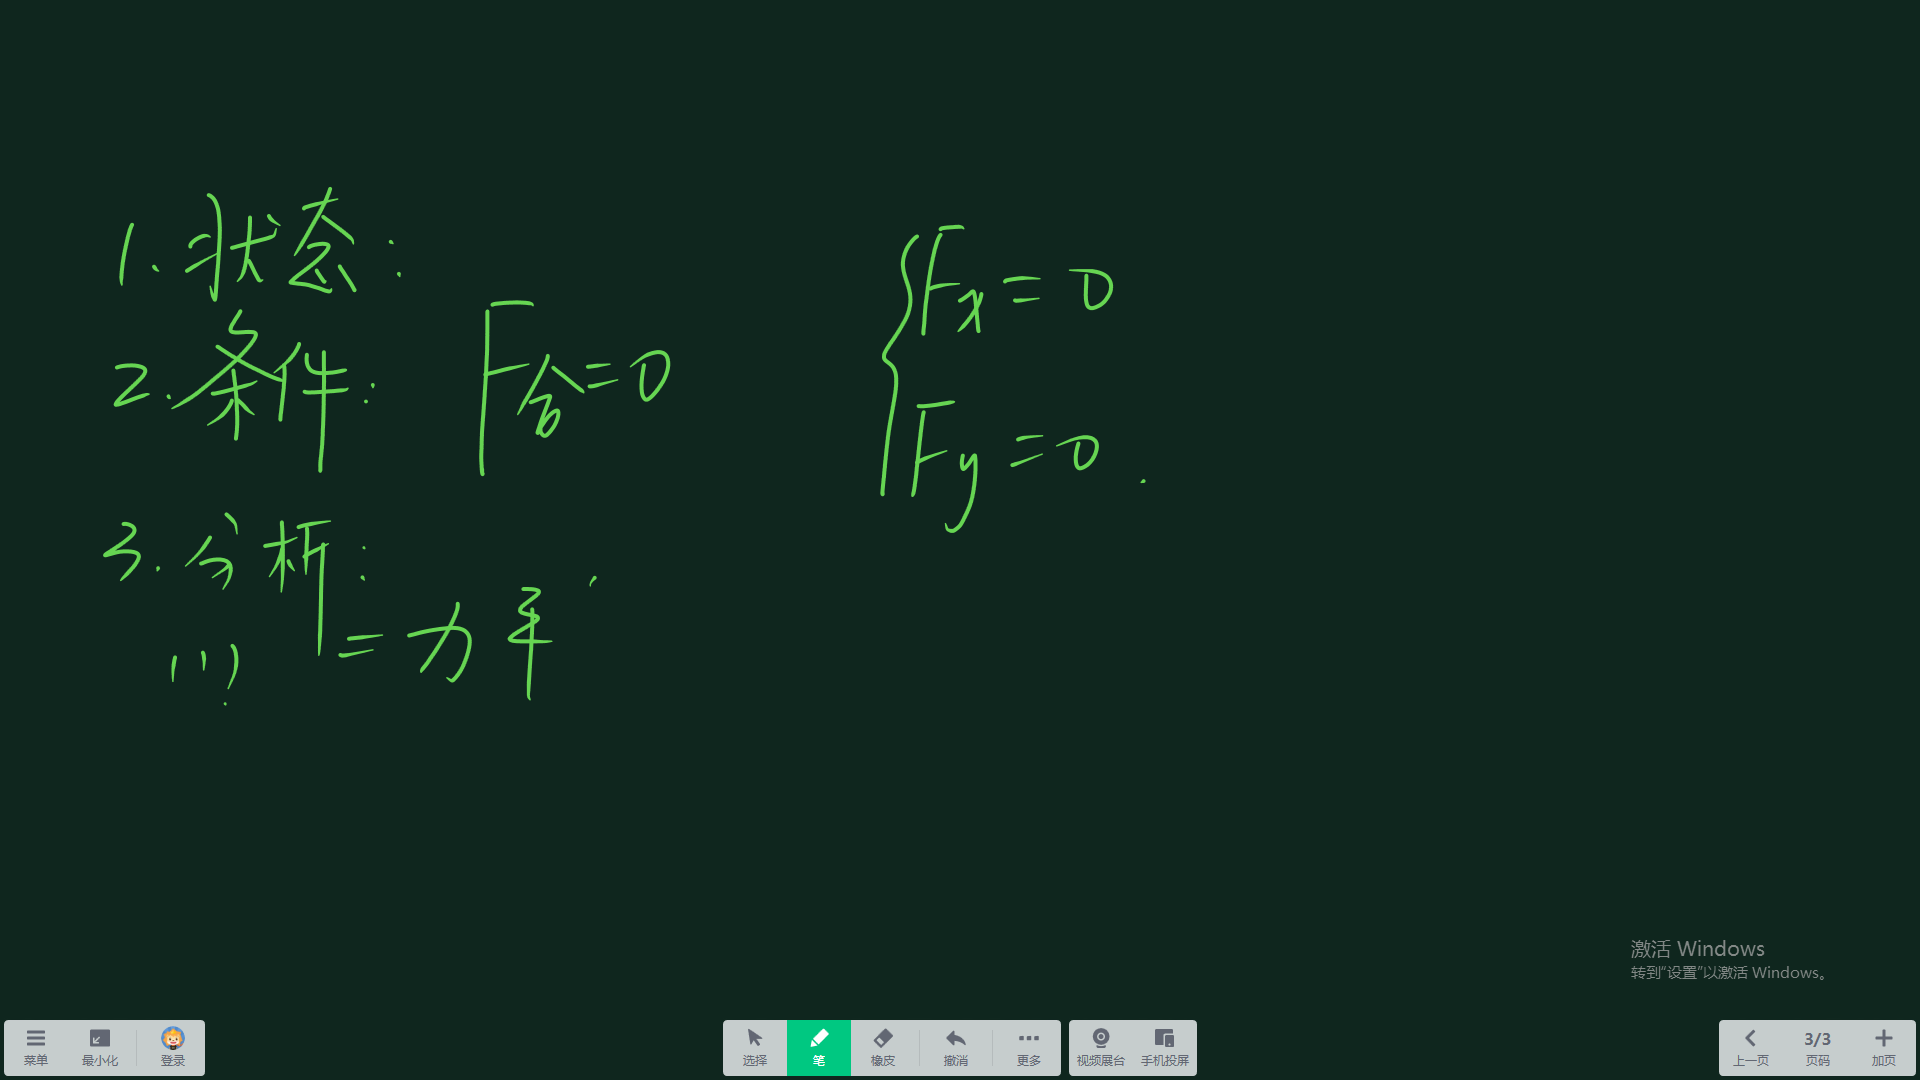 1. 状态:
2. 条件: F合=0
{Fx=0
Fy=0.
3. 分析:
(1) 二力平
激活 Windows
转到"设置"以激活 Windows。
菜单 最小化 登录 选择 笔 橡皮 撤消 更多 视频展台 手机投屏 上一页 3/3 页码 加页